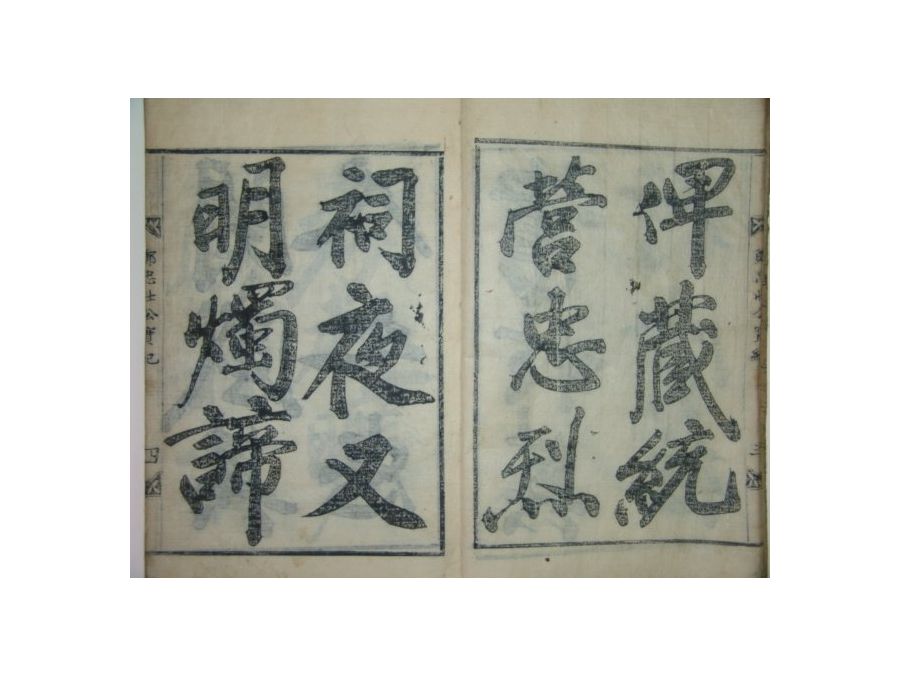 俾藏統
營忠烈
祠夜又
明燭諦